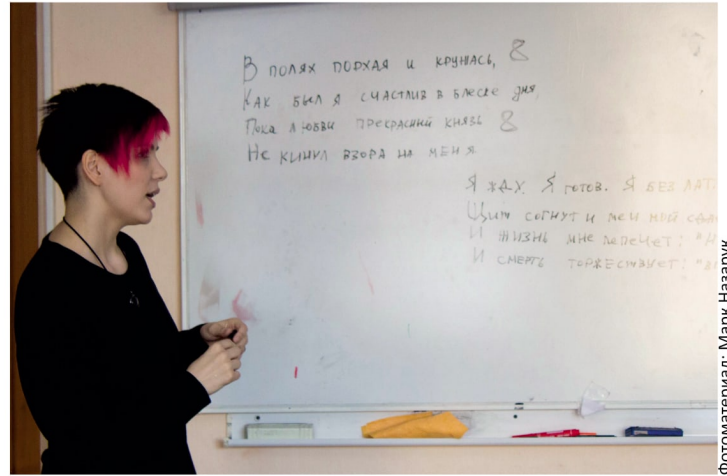 В ПОЛЯХ ПОРХАЯ И КРУЖАСЬ, 8
КАК БЫЛ Я СЧАСТЛИВ В БЛЕСКЕ ДНЯ,
ПОКА ЛЮБВИ ПРЕКРАСНЫЙ КНЯЗЬ 8
НЕ КИНУЛ ВЗОРА НА МЕНЯ
Я ЖДУ. Я ГОТОВ. Я БЕЗ ЛАТ
ЩИТ СОГНУТ И МЕЧ МОЙ СДАН
И ЖИЗНЬ МНЕ ЛЕПЕЧЕТ: "Н
И СМЕРТЬ ТОРЖЕСТВУЕТ: "
фотоматериал: Марк Назарук